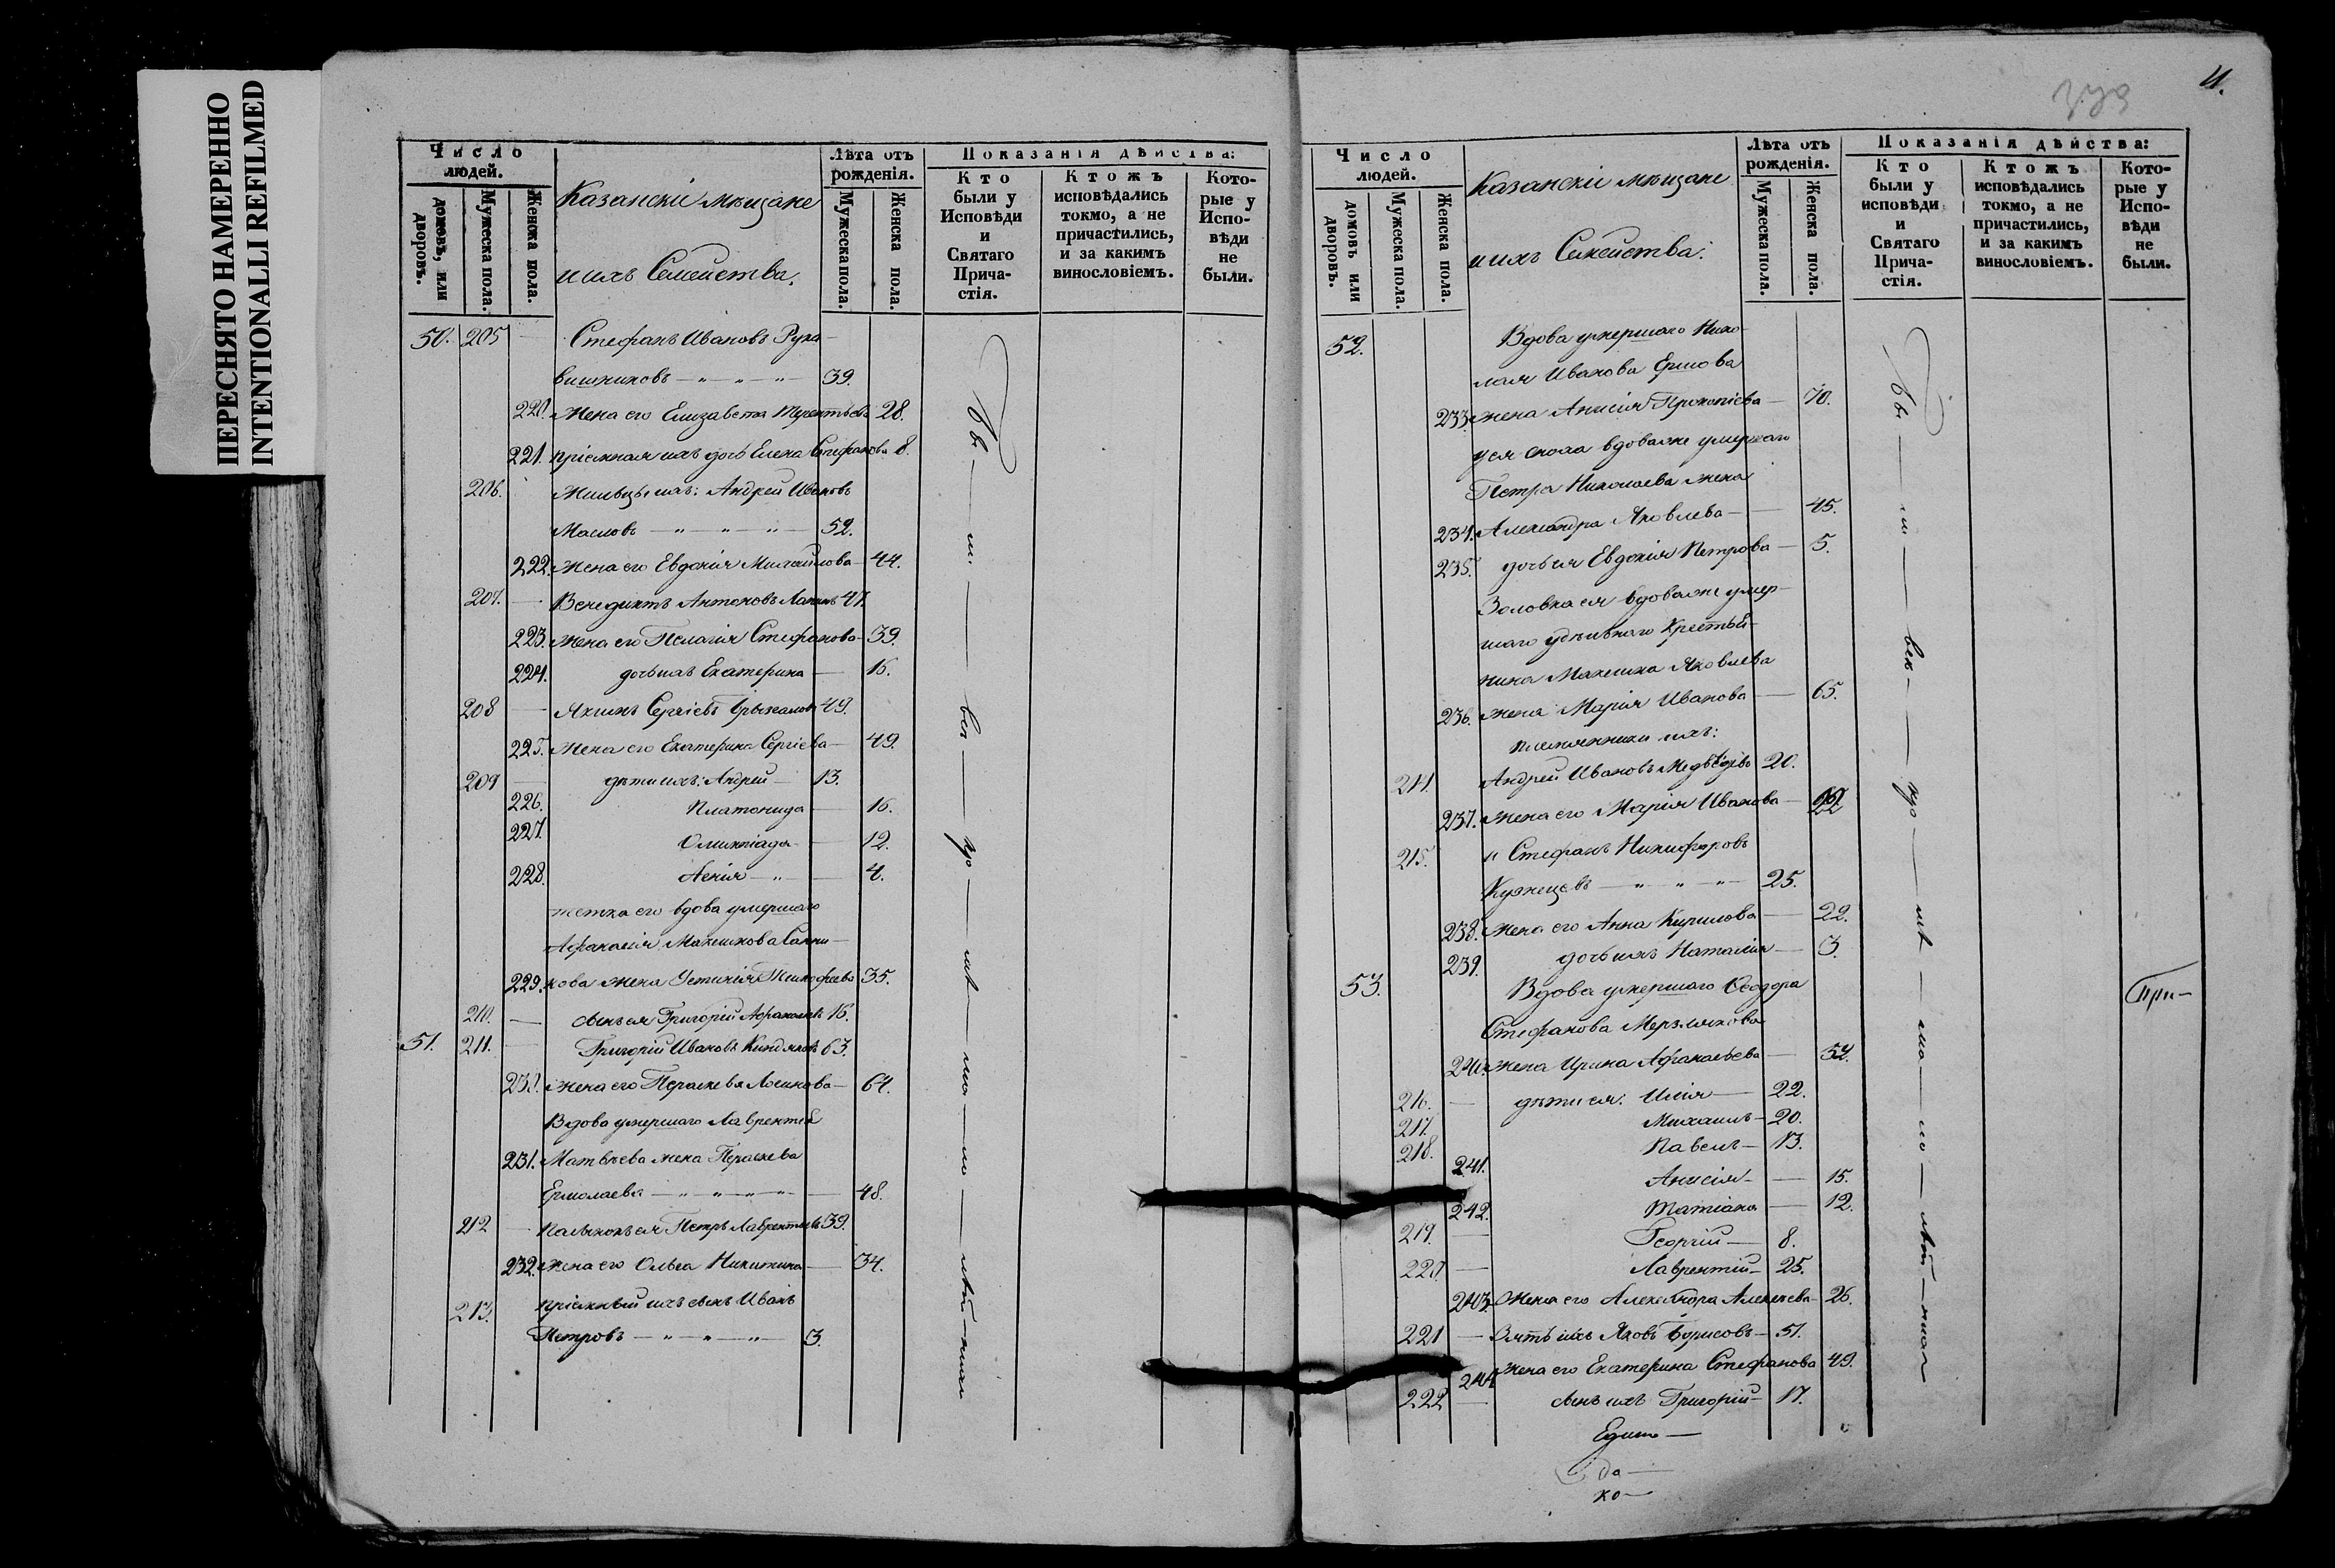 ПЕРЕСНЯТО НАМЕРЕННО
INTENTIONALLI REFILMED
Число людей.
домовъ, или дворовъ.
Мужеска пола.
Женска пола.
Казанскіе мѣщане
и ихъ Семейства.
Лѣта отъ рожденія.
Мужеска пола.
Женска пола.
Показанія дѣйства:
Кто были у Исповѣди и Святаго Причастія.
Ктожъ исповѣдались токмо, а не причастились, и за какимъ винословіемъ.
Которые у Исповѣди не были.
50. 205 — Стефанъ Ивановъ Рука-
вишниковъ — 〃 — 〃 — 〃 — 39.
220. Жена его Елизавета Терентьева 28.
221. пріемная ихъ дочь Елена Стефанова 8.
206. Жильцы ихъ: Андрей Ивановъ
Масловъ — 〃 — 〃 — 〃 — 52.
222. Жена его Евдокія Михайлова — 44.
207. — Венедиктъ Антоновъ 47.
223. Жена его Пелагія Стефанова — 39.
224. дочь ихъ Екатерина — 16.
208 — Сергіевъ 49.
225. Жена его Екатерина Сергіева — 49.
209 — дѣти ихъ: Андрей — 13.
226. Платонида — 16.
227. Олимпіада — 12.
228. — 〃 — 4.
тетка его вдова умершаго
Афанасія
229. кова жена Устинія 35.
210. — сынъ ея Григорій Афанасьевъ 16.
51. 211. — Григорій Ивановъ 63.
230. Жена его Параскева — 64.
Вдова умершаго Лаврентія
231. Матвѣева жена Параскева
Ермолаева — 〃 — 〃 — 〃 — 〃 — 48.
212 — ея Петръ Лаврентьевъ 39.
232. Жена его Ольга Никитина — 34.
213. пріемный ихъ сынъ Иванъ
Петровъ — 〃 — 〃 — 〃 — 3.
4.
Число людей.
домовъ или дворовъ.
Мужеска пола.
Женска пола.
Казанскіе мѣщане
и ихъ Семейства.
Лѣта отъ рожденія.
Мужеска пола.
Женска пола.
Показанія дѣйства:
Кто были у исповѣди и Святаго Причастія.
Ктожъ исповѣдались токмо, а не причастились, и за какимъ винословіемъ.
Которые у Исповѣди не были.
52. Вдова умершаго Нико-
лая Иванова Ершова
233. жена Анисія Прокопіева — 70.
ея сноха вдова же умершаго
Петра Николаева жена
234. Александра Яковлева — 45.
235. дочь ея Евдокія Петрова — 5.
Золовка ея вдова же умер-
шаго удѣльнаго Крестья-
нина Яковлева
236. жена Марія Иванова — 65.
племянники ихъ:
214. Андрей Ивановъ 20.
237. Жена его Марія Иванова — 22
215. и Стефанъ Никифоровъ
Кузнецовъ — 〃 — 〃 — 〃 — 25.
238. Жена его Анна Кирилова — 22.
239. дочь ихъ Наталія — 3.
53. Вдова умершаго Ѳеодора
Стефанова Мерзлякова
240. жена Ирина Афанасьева — 54.
216. — дѣти ея: Илія — 22.
217. Михаилъ — 20.
218. Павелъ — 13.
241. Анисія — 15.
242. Татіана — 12.
219. — Георгій — 8.
220. — Лаврентій — 25.
243. Жена его Александра Алексѣева — 26.
221 — Зять ихъ Яковъ Борисовъ — 51.
244 Жена его Екатерина Стефанова 49.
222 — сынъ ихъ Григорій — 17.